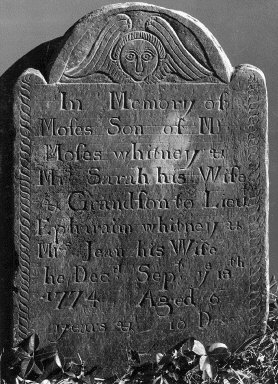 In Memory of
Moſes Son of Mr
Moſes whitney &
Mrs Sarah his Wife
& Grandſon to Lieu
Ephraim whitney &
Mrs Jean his Wife
he Decd Sept ye
1774 Aged 6
years & 10 Days